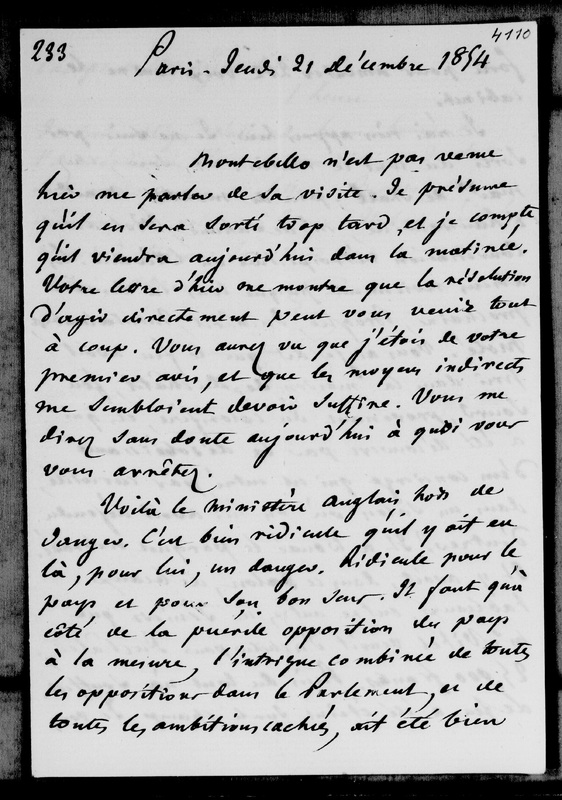 233
4110
Paris - Jeudi 21 décembre 1854
Montebello n'est pas venu
hier me parler de sa visite. Je présume
qu'il en sera sorti trop tard, et je compte
qu'il viendra aujourd'hui dans la matinée.
Votre lettre d'hier me montre que la résolution
d'agir directement peut vous venir tout
à coup. Vous aurez vu que j'étois de votre
premier avis, et que les moyens indirects
me sembloient devoir suffire. Vous me
direz sans doute aujourd'hui à quoi vous
vous arrêtez.
Voilà le ministère anglais hors de
danger. C'est bien ridicule qu'il y ait eu
là, pour lui, un danger. Ridicule pour le
pays et pour son bon sens. Il faut qu'à
côté de la puérile opposition du pays
à la mesure, l'intrigue combinée de toutes
les oppositions dans le Parlement, et de
toutes les ambitions cachées, ait été bien